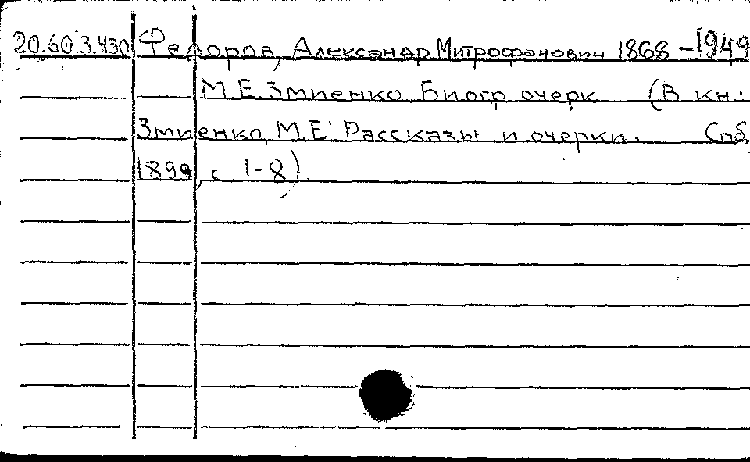 20.60.3.430 Федоров, Александр Митрофанович 1868-1949
М.Е. Змиенко. Биогр. очерк (В кн.:
Змиенко, М.Е. Рассказы и очерки. Спб,
1899, с 1-8).